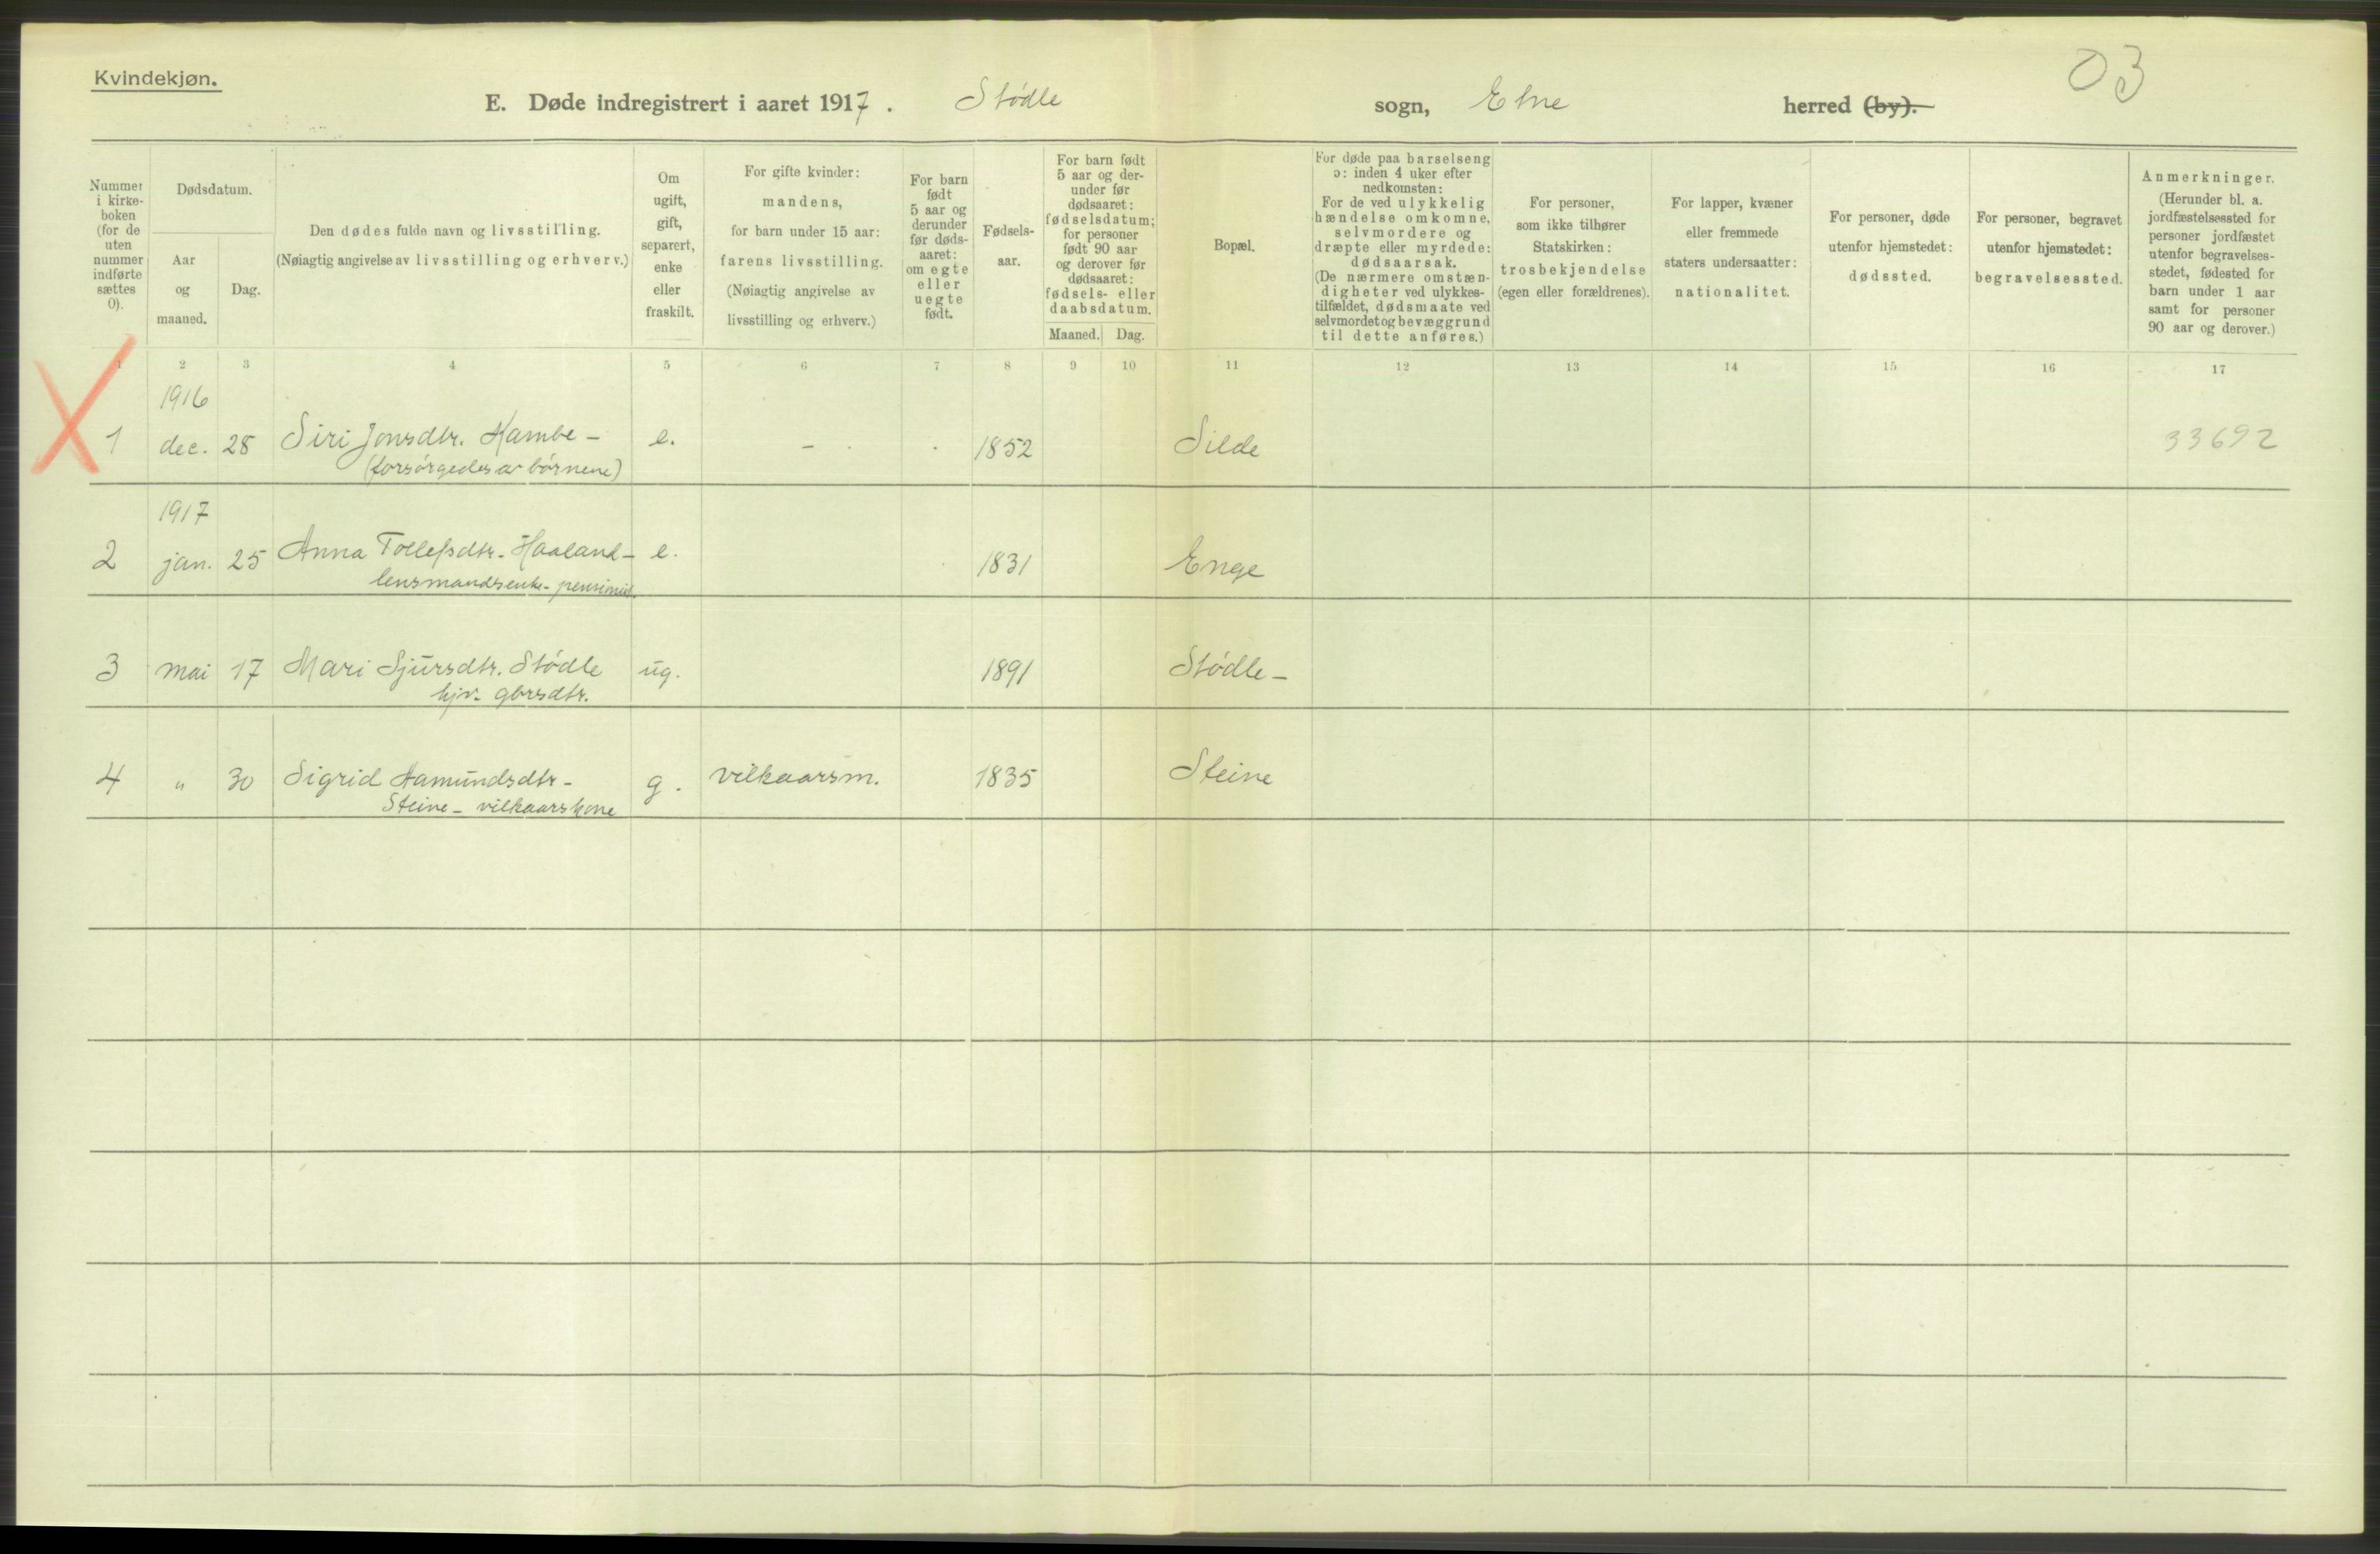 Kvindekjøn.
03
E. Døde indregistrert i aaret 1917. Stødle sogn, Etne herred (by).
Nummer i kirke-boken (for de uten nummer indførte sættes 0).
Dødsdatum.
Aar og maaned.
Dag.
Den dødes fulde navn og livsstilling.
(Nøiagtig angivelse av livsstilling og erhverv.)
Om ugift, gift, separert, enke eller fraskilt.
For gifte kvinder: mandens, for barn under 15 aar: farens livsstilling.
(Nøiagtig angivelse av livsstilling og erhverv.)
For barn født 5 aar og derunder før døds-aaret: om egte eller uegte født.
Fødsels-aar.
For barn født 5 aar og der-under før dødsaaret: fødselsdatum; for personer født 90 aar og derover før dødsaaret: fødsels- eller daabsdatum.
Maaned. Dag.
Bopæl.
For døde paa barselseng ɔ: inden 4 uker efter nedkomsten:
For de ved ulykkelig hændelse omkomne, selvmordere og dræpte eller myrdede: dødsaarsak.
(De nærmere omstæn-digheter ved ulykkes-tilfældet, dødsmaate ved selvmordet og bevæggrund til dette anføres.)
For personer, som ikke tilhører Statskirken: trosbekjendelse (egen eller forældrenes).
For lapper, kvæner eller fremmede staters undersaatter: nationalitet.
For personer, døde utenfor hjemstedet: dødssted.
For personer, begravet utenfor hjemstedet: begravelsessted.
Anmerkninger.
(Herunder bl. a. jordfæstelsessted for personer jordfæstet utenfor begravelses-stedet, fødested for barn under 1 aar samt for personer 90 aar og derover.)
1 2 3 4 5 6 7 8 9 10 11 12 13 14 15 16 17
1916
1 dec. 28 Siri Jonsdtr. Hambe - e. - 1852 Silde 33692
(forsørgedes av børnene)
1917
2 jan. 25 Anna Tollefsdtr. Haaland - e. 1831 Enge
lensmandsenke -
3 mai 17 Mari Sjursdtr. Stødle ug. 1891 Stødle -
hjv. gbrsdtr.
4 " 30 Sigrid Aamundsdtr - g. vilkaarsm. 1835 Steine
Steine - vilkaarskone